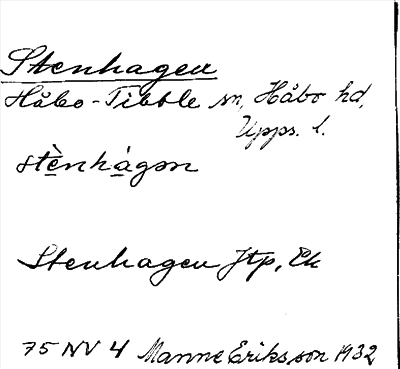 Stenhagen
Håbo-Tibble sn, Håbo hd,
Upps. l.
stènhàgən
Stenhagen Jtp, Ek
75 NV 4 Manne Eriksson 1932